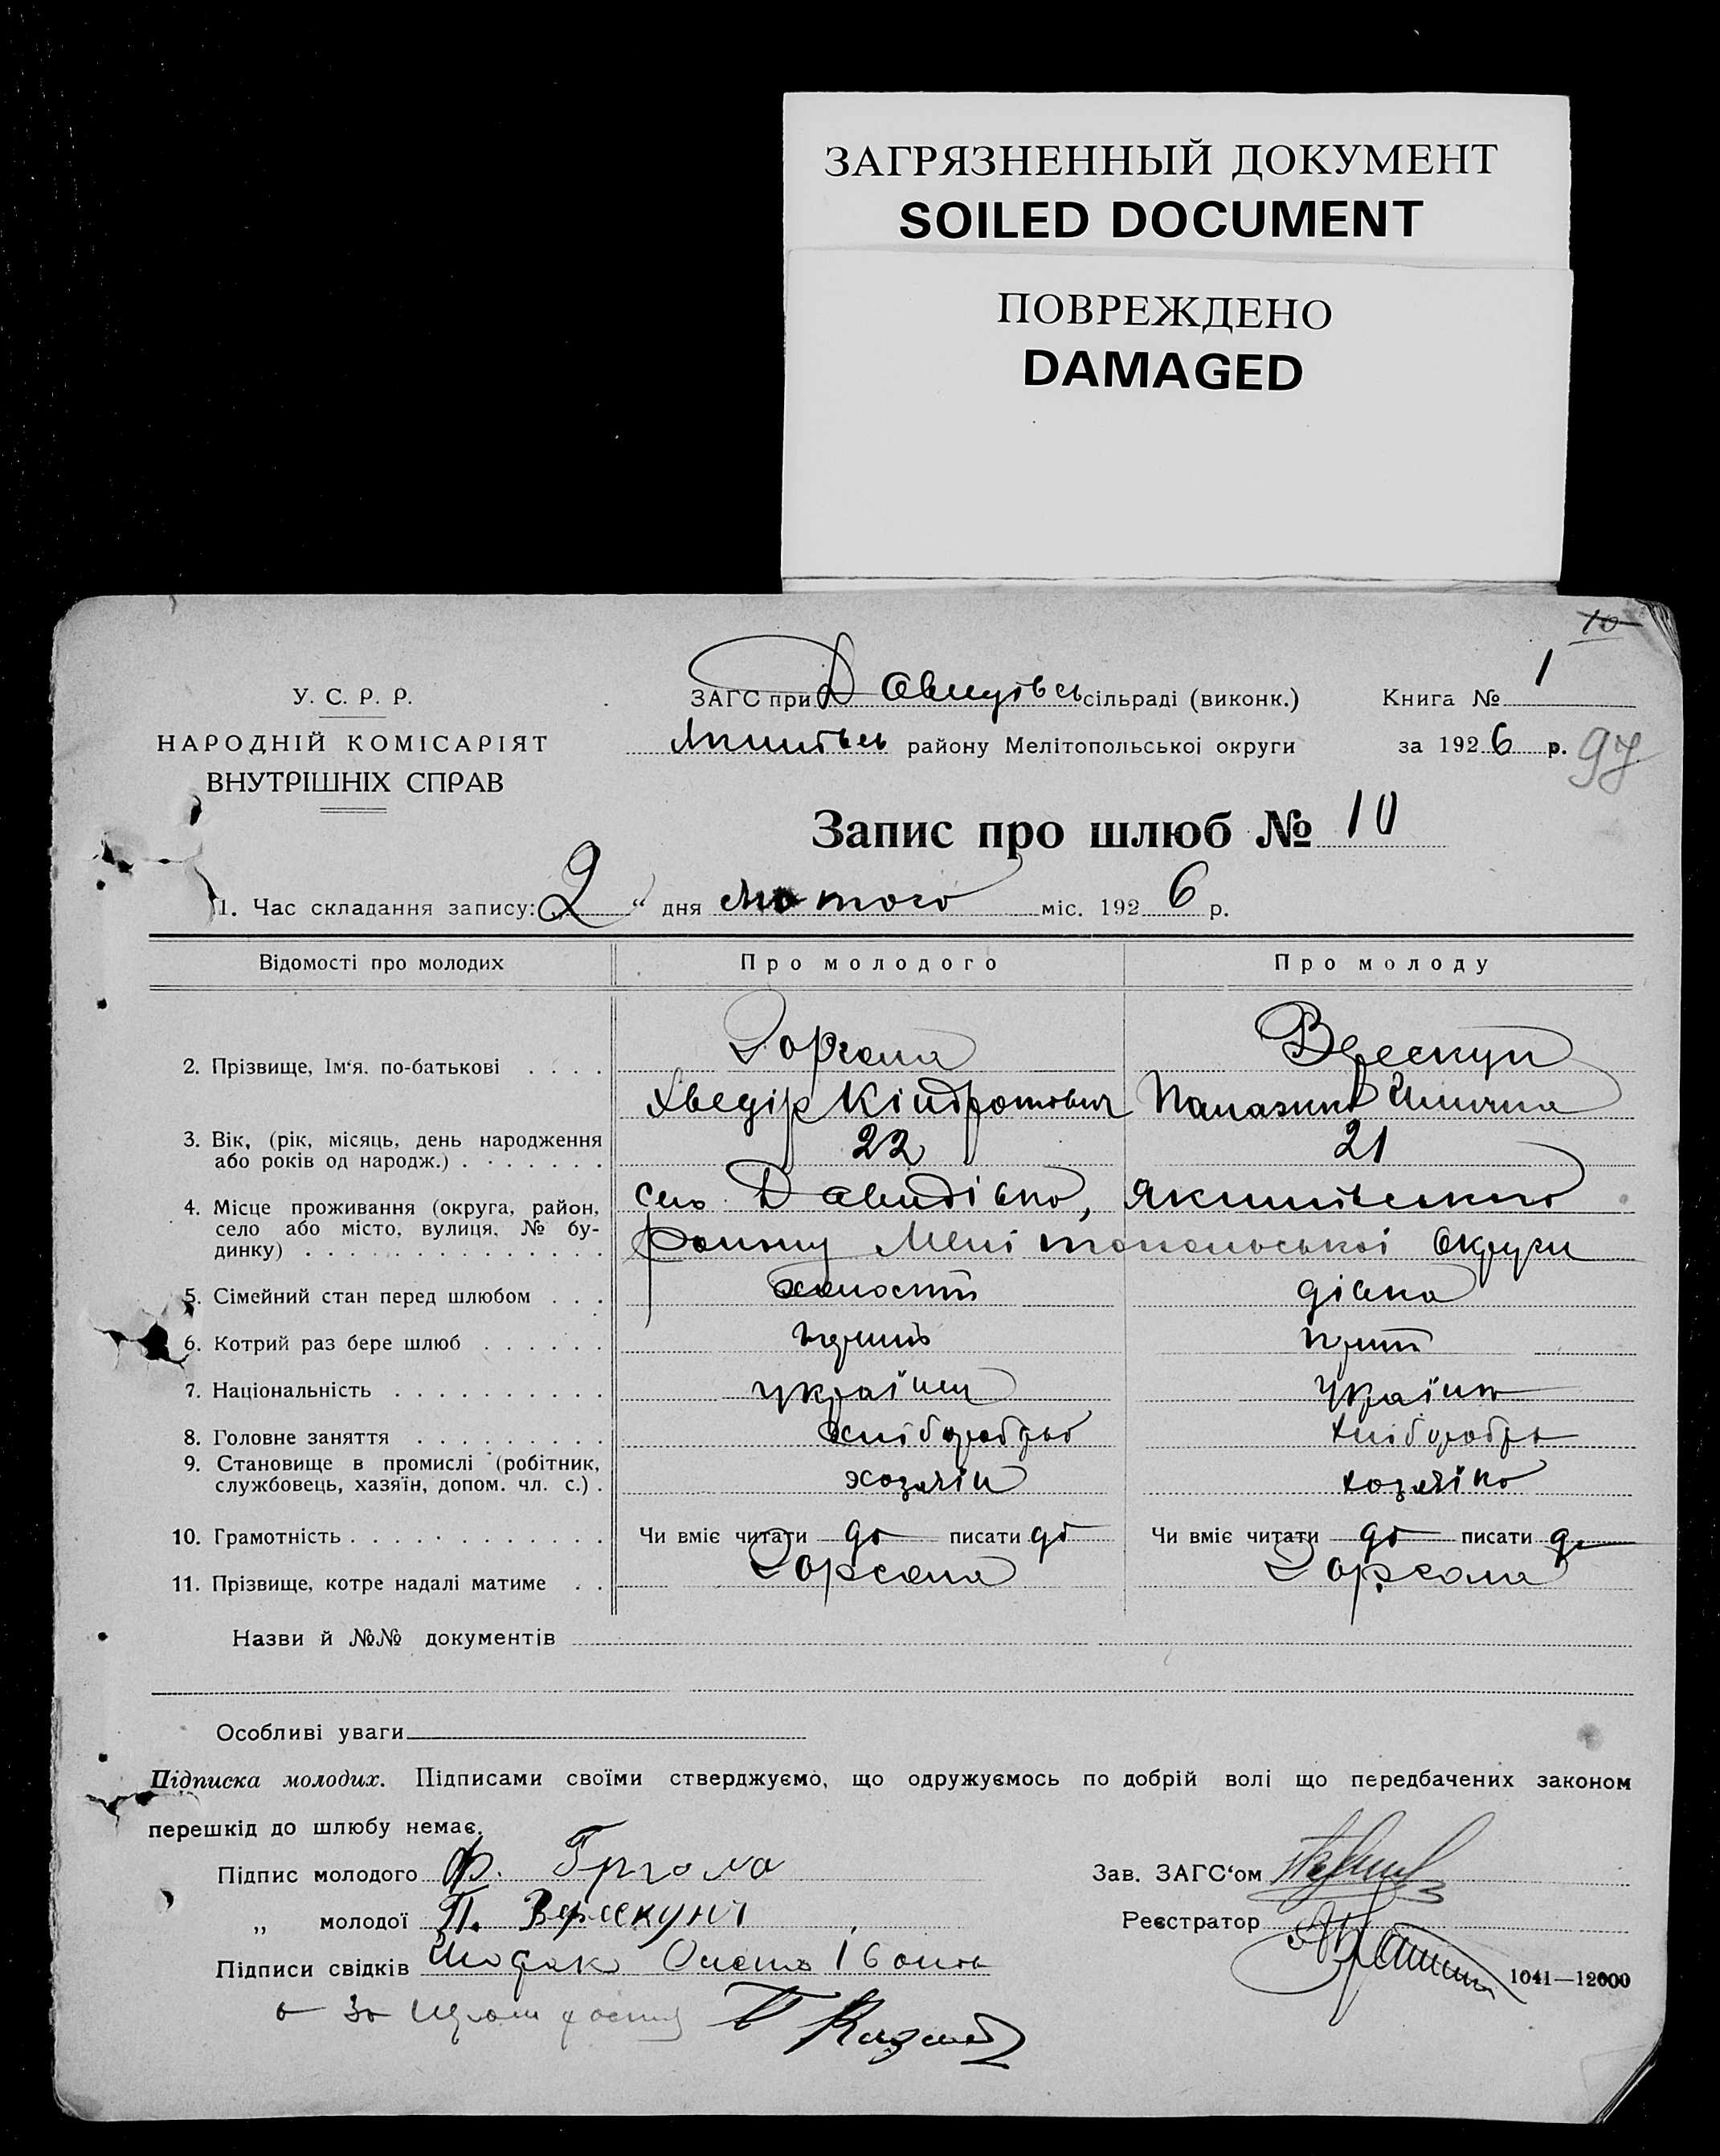 ЗАГРЯЗНЕННЫЙ ДОКУМЕНТ
SOILED DOCUMENT
ПОВРЕЖДЕНО
DAMAGED
10
У. С. Р. Р.
НАРОДНІЙ КОМІСАРІЯТ
ВНУТРІШНІХ СПРАВ
ЗАГС при Давидівсь сільраді (виконк.) Книга № 1
району Мелітопольської округи за 1926 р. 97
Запис про шлюб № 10
1. Час складання запису: 2 " дня лютого міс. 1926 р.
Відомості про молодих Про молодого Про молоду
2. Прізвище, Ім'я. по-батькові . . . . Верескун
Хведір Кіндратович
3. Вік, (рік, місяць, день народження
або років од народж.) . . . . . . . 22 21
4. Місце проживання (округа, район, село Давидівка, Якимівського
село або місто, вулиця, № бу-
динку) . . . . . . . . . . . . . . . району Мелітопольської Округи
5. Сімейний стан перед шлюбом . . . холостий дівка
6. Котрий раз бере шлюб . . . . . .
7. Національність . . . . . . . . . . українец україн
8. Головне заняття . . . . . . . . . хліборобство
9. Становище в промислі (робітник,
службовець, хазяїн, допом. чл. с.) . хозяїн хозяїна
10. Грамотність . . . . . . . . . . . Чи вміє читати да писати да Чи вміє читати да писати да
11. Прізвище, котре надалі матиме . .
Назви й №№ документів
Особливі уваги
Підписка молодих. Підписами своїми стверджуємо, що одружуємось по добрій волі що передбачених законом
перешкід до шлюбу немає.
Підпис молодого Ф. Зав. ЗАГС'ом
„ молодої П. Верескун Реєстратор
Підписи свідків
1041—12000